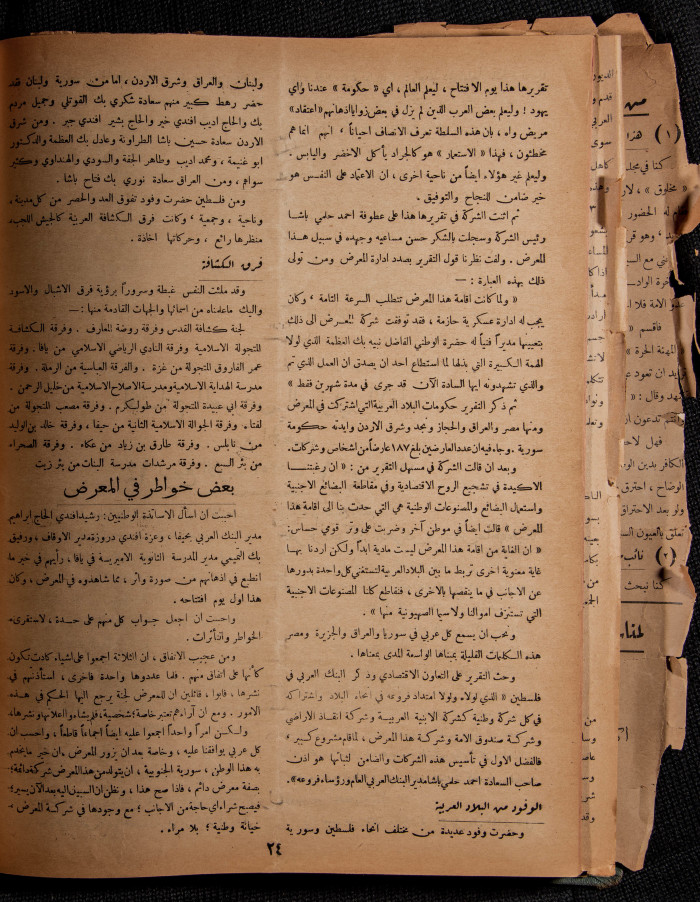 تقريرها هذا يوم الافتتاح ، ليعلم العالم ، اي « حكومة » عندنا واي
يهود ! وليعلم بعض العرب الذين لم يزل في بعض زوايا اذهانهم « اعتقاد »
مريض واه ، بان هذه السلطة تعرف الانصاف احياناً ، انهم انما هم
مخطئون ، فهذا « الاستعمار » هو كالجراد يأكل الاخضر واليابس .
وليعلم غير هؤلاء ايضاً من ناحية اخرى ، ان الاعتماد على النفس هو
خير ضامن للنجاح والتوفيق .
ثم اتت الشركة في تقريرها هذا على عطوفة احمد حلمي باشا
رئيس الشركة وسجلت بالشكر حسن مساعيه وجهده في سبيل هذا
المعرض . ولفت نظرنا قول التقرير بصدد ادارة المعرض ومن تولى
ذلك بهذه العبارة : —
« ولما كانت اقامة هذا المعرض تتطلب السرعة التامة ، وكان
يجب له ادارة عسكرية حازمة ، فقد توفقت شركة المعرض الى ذلك
بتعيينها مديراً فنياً له حضرة الوطني الفاضل نبيه بك العظمة الذي لولا
الهمة الكبيرة التي بذلها لما استطاع احد ان يصدق ان العمل الذي تم
والذي تشهدونه ايها السادة الآن قد جرى في مدة شهرين فقط »
ثم ذكر التقرير حكومات البلاد العربية التي اشتركت في المعرض
ومنها مصر والعراق والحجاز ونجد وشرق الاردن وايدته حكومة
سورية . وجاء فيه ان عدد العارضين بلغ ١٨٧ عارضاً من اشخاص وشركات.
وبعد ان قالت الشركة في مستهل التقرير من : « ان رغبتنا
الاكيدة في تشجيع الروح الاقتصادية وفي مقاطعة البضائع الاجنبية
واستعمال البضائع والمصنوعات الوطنية هي التي حدت بنا الى اقامة هذا
المعرض » قالت ايضاً في موطن آخر وضربت على وتر قومي حساس:
« ان الغاية من اقامة هذا المعرض ليست مادية ابداً ولكن اردنا بها
غاية معنوية اخرى تربط ما بين البلاد العربية لتستغني كل واحدة بدورها
عن الاجانب في ما ينقصها بالاخرى ، فنقاطع كلنا المصنوعات الاجنبية
التي تستنزف اموالنا ولاسيما الصهيونية منها » .
ونحب ان يسمع كل عربي في سوريا والعراق والجزيرة ومصر
هذه الكلمات القليلة بمبناها الواسعة المدى بمعناها .
وحث التقرير على التعاون الاقتصادي وذكر البنك العربي في
فلسطين « الذي لولاه ولولا امتداد فروعه في انحاء البلاد واشتراكه
في كل شركة وطنية كشركة الابنية العربية وشركة انقاذ الاراضي
وشركة صندوق الامة وشركة هذا المعرض ، لما قام مشروع كبير ،
فالفضل الاول في تأسيس هذه الشركات والضامن لثباتها هو اذن
صاحب السعادة احمد حلمي باشا مدير البنك العربي العام ورؤساء فروعه».
الوفود من البلاد العربية
وحضرت وفود عديدة من مختلف انحاء فلسطين وسورية
ولبنان والعراق وشرق الاردن ، اما من سورية ولبنان فقد
حضر رهط كبير منهم سعادة شكري بك القوتلي وجميل مردم
بك والحاج اديب افندي خير والحاج بشير افندي جبر . ومن شرق
الاردن سعادة حسين باشا الطراونة وعادل بك العظمة والدكتور
ابو غنيمة ، ومحمد اديب وطاهر الجقة والسودي والهنداوي وكثير
سواهم ، ومن العراق سعادة نوري بك فتاح باشا .
ومن فلسطين حضرت وفود تفوق العد والحصر من كل مدينة،
وناحية ، وجمعية ، وكانت فرق الكشافة العربية كالجيش اللجب،
منظرها رائع ، وحركاتها اخاذة .
فرق الكشافة
وقد ملئت النفس غبطة وسروراً برؤية فرق الاشبال والاسود
واليك ماعلمناه من اسمائها والجهات القادمة منها : —
لجنة كشافة القدس وفرقة روضة المعارف . وفرقة الكشافة
المتجولة الاسلامية وفرقة النادي الرياضي الاسلامي من يافا . وفرقة
عمر الفاروق المتجولة من غزة . والفرقة العباسية من الرملة . وفرقة
مدرسة الهداية الاسلامية ومدرسة الاصلاح الاسلامية من خليل الرحمن .
وفرقة ابي عبيدة المتجولة من طولكرم . وفرقة مصعب المتجولة من
لفتا. وفرقة الجوالة الاسلامية الثانية من حيفا ، وفرقة خالد بن الوليد
من نابلس . وفرقة طارق بن زياد من عكاء . وفرقة الصحراء
من بئر السبع . وفرقة مرشدات مدرسة البنات من بئر زيت
بعض خواطر في المعرض
احببت ان اسأل الاساتذة الوطنيين : رشيد افندي الحاج ابراهيم
مدير البنك العربي بحيفا ، وعزة افندي دروزة مدير الاوقاف ، ورفيق
بك التميمي مدير المدرسة الثانوية الاميرية في يافا ، رأيهم في خير ما
انطبع في اذهانهم من صورة واثر ، مما شاهدوه في المعرض ، وكان
هذا اول يوم افتتاحه .
واحببت ان اجعل جواب كل منهم على حدة ، لاستقرىء
الخواطر والتأثرات .
ومن عجيب الاتفاق ، ان الثلاثة اجمعوا على اشياء كادت تكون
كأنها على اتفاق منهم . فلما عددوها واحدة فاخرى ، استأذنتهم في
نشرها ، قالوا ، قائلين ان للمعرض لجنة يرجع اليها الحكم في هذه
الامور . ومع ان آراءهم تعتبر خاصة ؛ شخصية ، فلم يشاءوا اعلانها ونشرها،
ولكن امراً واحداً اجمعوا عليه ايضاً اجماعاً قاطعاً ، واحسب ان
كل عربي يوافقنا عليه ، وخاصة بعد ان يزور المعرض ، ان خير ما يخدم
به هذا الوطن ، سورية الجنوبية ، ان يتولد من هذا المعرض شركة دائمة؛
بصفة معرض دائم ، فاذا صح هذا ، ونظن ان السبيل اليه بعد الآن يسير؛
فيصبح شراء اي حاجة من الاجانب ؛ مع وجودها في شركة المعرض ،
خيانة وطنية ؛ بلا مراء .
٢٤